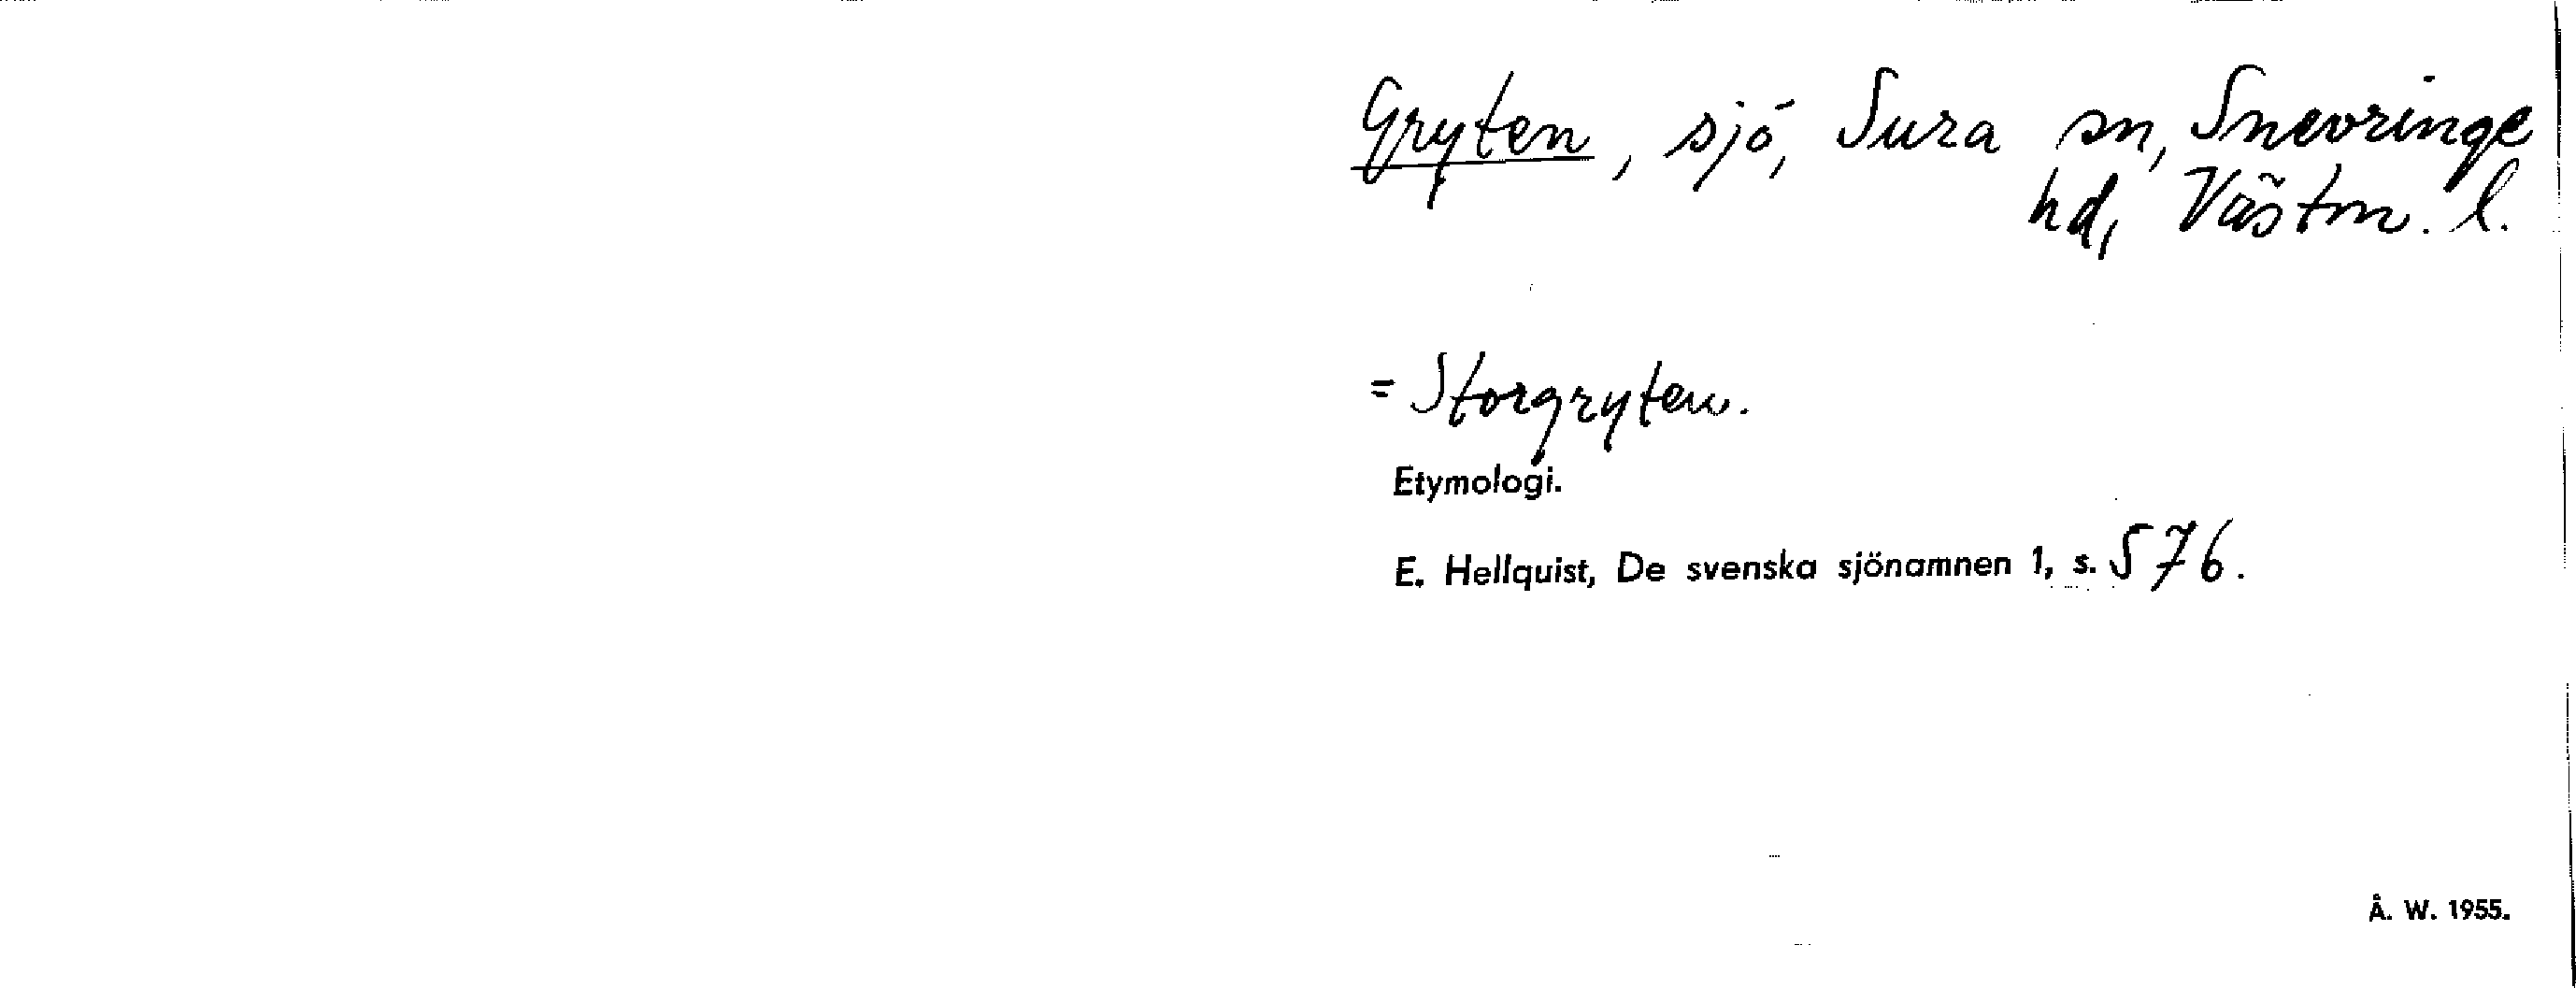 Gryten, sjö, Sura sn, Snevringe
hd, Västm. l.
= Storgryten.
Etymologi.
E. Hellquist, De svenska sjönamnen 1, s. 576.
Å. W. 1955.